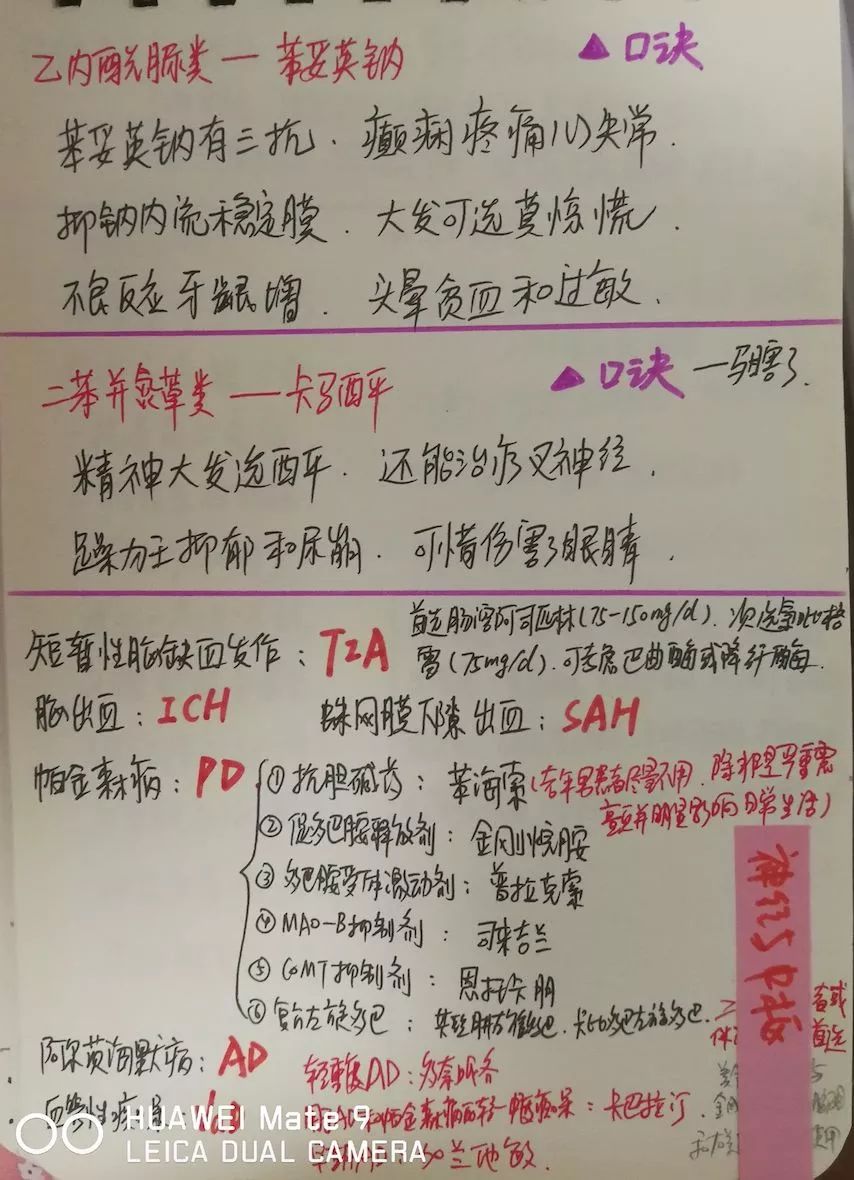 乙内酰脲类 — 苯妥英钠 ▲口诀
苯妥英钠有三抗．癫痫疼痛心失常．
抑钠内流稳定膜．大发可选莫惊慌．
不良反应牙龈增．头晕贫血和过敏．
二苯并氮䓬类 — 卡马西平 ▲口诀 一马瞎了．
精神大发选西平．还能治疗叉神经．
躁力王抑郁和尿崩．可惜伤害了眼睛．
短暂性脑缺血发作：TIA 首选肠溶阿司匹林(75-150mg/d)．次选氯吡格
雷(75mg/d)．可考虑巴曲酶或降纤酶．
脑出血：ICH 蛛网膜下隙出血：SAH
帕金森病：PD ①抗胆碱药：苯海索(老年患者尽量不用．除非是严重震
颤并明显影响日常生活)
②促多巴胺释放剂：金刚烷胺
③多巴胺受体激动剂：普拉克索
④MAO-B抑制剂：司来吉兰
⑤COMT抑制剂：恩托卡朋
⑥复方左旋多巴：
阿尔茨海默病：AD 轻重度AD：多奈哌齐
血管性痴呆： 帕金森病 痴呆：卡巴拉汀．
神经中枢
HUAWEI Mate 9
LEICA DUAL CAMERA